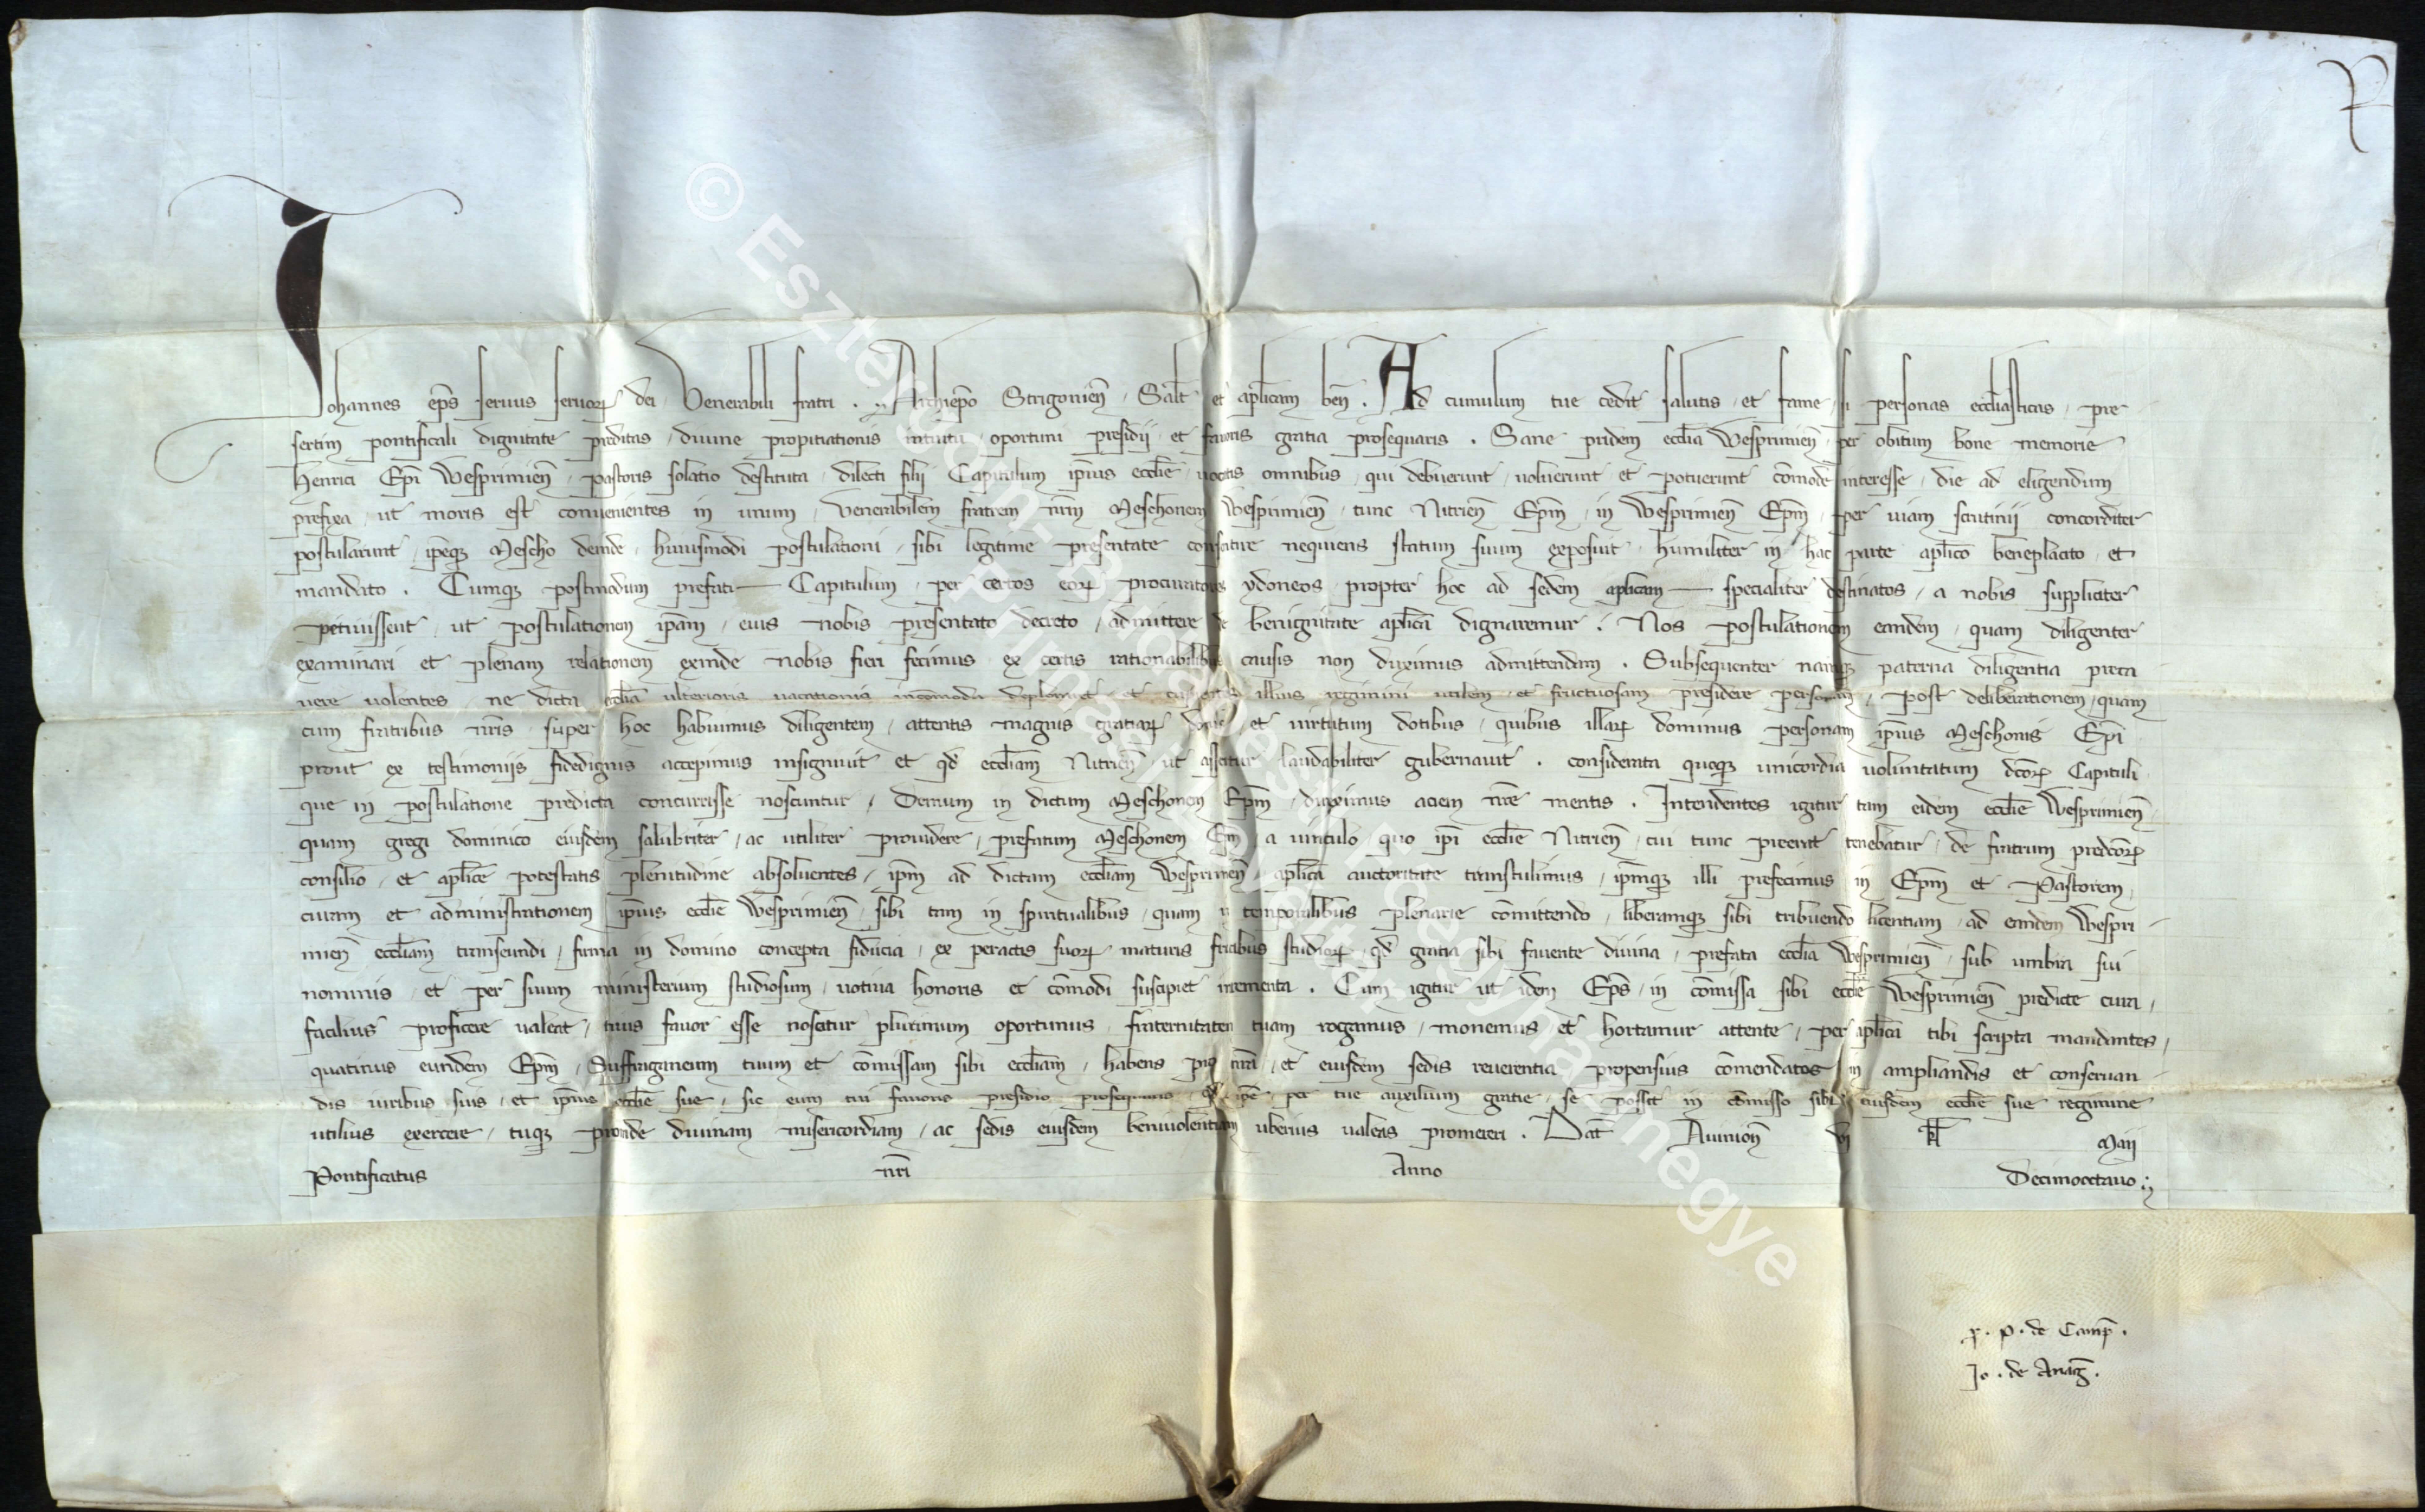 R
Johannes ep̃s seruus seruoꝝ dei Venerabili fratri . .. Archiep̃o Strigonien̄ . Salt̃ et aplicam ben̄ . Ad cumulum tue cedit salutis et fame si personas eccl̃iasticas pre
sertim pontificali dignitate preditas diuine propitiationis intuitu oportuni presidii et fauoris gratia prosequaris . Sane pridem eccl̃ia Wesprimien̄ per obitum bone memorie
Henrici Ep̃i Wesprimien̄ pastoris solatio destituta dilecti filij Capitulum ip̃ius eccl̃ie uocatis omnibus qui debuerunt uoluerunt et potuerunt com̃ode interesse die ad eligendum
prefixa ut moris est conuenientes in unum Venerabilem fratrem nr̃m Meschonem Wesprimien̄ tunc Nitrien̄ Ep̃m in Wesprimien̄ Ep̃m per uiam scrutinij concorditer
postularunt ip̃eqꝫ Mescho deinde huiusmodi postulationi sibi legitime presentate consentire nequiens statum suum exposuit humiliter in hac parte aplico beneplacito et
mandato . Cumqꝫ postmodum prefati Capitulum per certos eoꝝ procuratores ydoneos propter hoc ad sedem aplicam specialiter destinatos a nobis suppliciter
petiuissent ut postulationem ip̃am eius nobis presentato decreto admittere de benignitate aplica dignaremur . Nos postulationem eandem quam diligenter
examinari et plenam relationem exinde nobis fieri fecimus ex certis rationabilibus causis non duximus admittendam . Subsequenter namqꝫ paterna diligentia preca
uere uolentes ne dicta eccl̃ia ulterioris uacationis incomoda deploraret et cupientes illius regimini utilem et fructuosam presidere personam post deliberationem quam
cum fratribus nr̃is super hoc habuimus diligentem attentis magnis gratiaꝝ donis et uirtutum dotibus quibus illaꝝ dominus personam ip̃ius Meschonis Ep̃i
prout ex testimoniis fidedignis accepimus insigniuit et qd̃ eccl̃iam Nitrien̄ ut asseritur laudabiliter gubernauit . considerata quoqꝫ unicordia uoluntatum dc̃oꝝ Capituli
que in postulatione predicta concurrisse noscuntur Demum in dictum Meschonem Ep̃m duximus aciem nr̃e mentis . Intendentes igitur tam eidem eccl̃ie Wesprimien̄
quam gregi dominico eiusdem salubriter ac utiliter prouidere prefatum Meschonem Ep̃m a uinculo quo ip̃i eccl̃ie Nitrien̄ cui tunc preerat tenebatur de fratrum predc̃oꝝ
consilio et aplice potestatis plenitudine absoluentes ip̃m ad dictam eccl̃iam Wesprimien̄ aplica auctoritate transtulimus ip̃mqꝫ illi prefecimus in Ep̃m et Pastorem
curam et administrationem ip̃ius eccl̃ie Wesprimien̄ sibi tam in spiritualibus quam in temporalibus plenarie com̃ittendo liberamqꝫ sibi tribuendo licentiam ad eandem Wespri
mien̄ eccl̃iam transeundi firma in domino concepta fiducia ex peractis suoꝝ maturis fructibus studioꝝ qd̃ gratia sibi fauente diuina prefata eccl̃ia Wesprimien̄ sub umbra sui
nominis et per suum ministerium studiosum uotiua honoris et com̃odi suscipiet incrementa . Cum igitur ut idem Ep̃s in com̃issa sibi eccl̃ie Wesprimien̄ predicte cura
facilius proficere ualeat tuus fauor esse noscatur plurimum oportunus fraternitatem tuam rogamus monemus et hortamur attente per aplica tibi scripta mandantes
quatinus eundem Ep̃m Suffraganeum tuum et com̃issam sibi eccl̃iam habens pro nr̃a et eiusdem sedis reuerentia propensius com̃endatos in ampliandis et conseruan
dis iuribus suis et ip̃ius eccl̃ie sue sic eum tui fauoris presidio prosequaris qd̃ ip̃e per tue auxilium gratie se possit in com̃isso sibi eiusdem eccl̃ie sue regimine
utilius exercere tuqꝫ proinde diuinam misericordiam ac sedis eiusdem beniuolentiam uberius ualeas promereri . Dat̃ Auinion̄ vj kl̃ Maij
Pontificatus nr̃i Anno Decimooctauo .
p̱ . p . de Camp̃ .
Jo . de Anag̃ .
© Esztergom-Budapesti Főegyházmegye
Prímási Levéltár